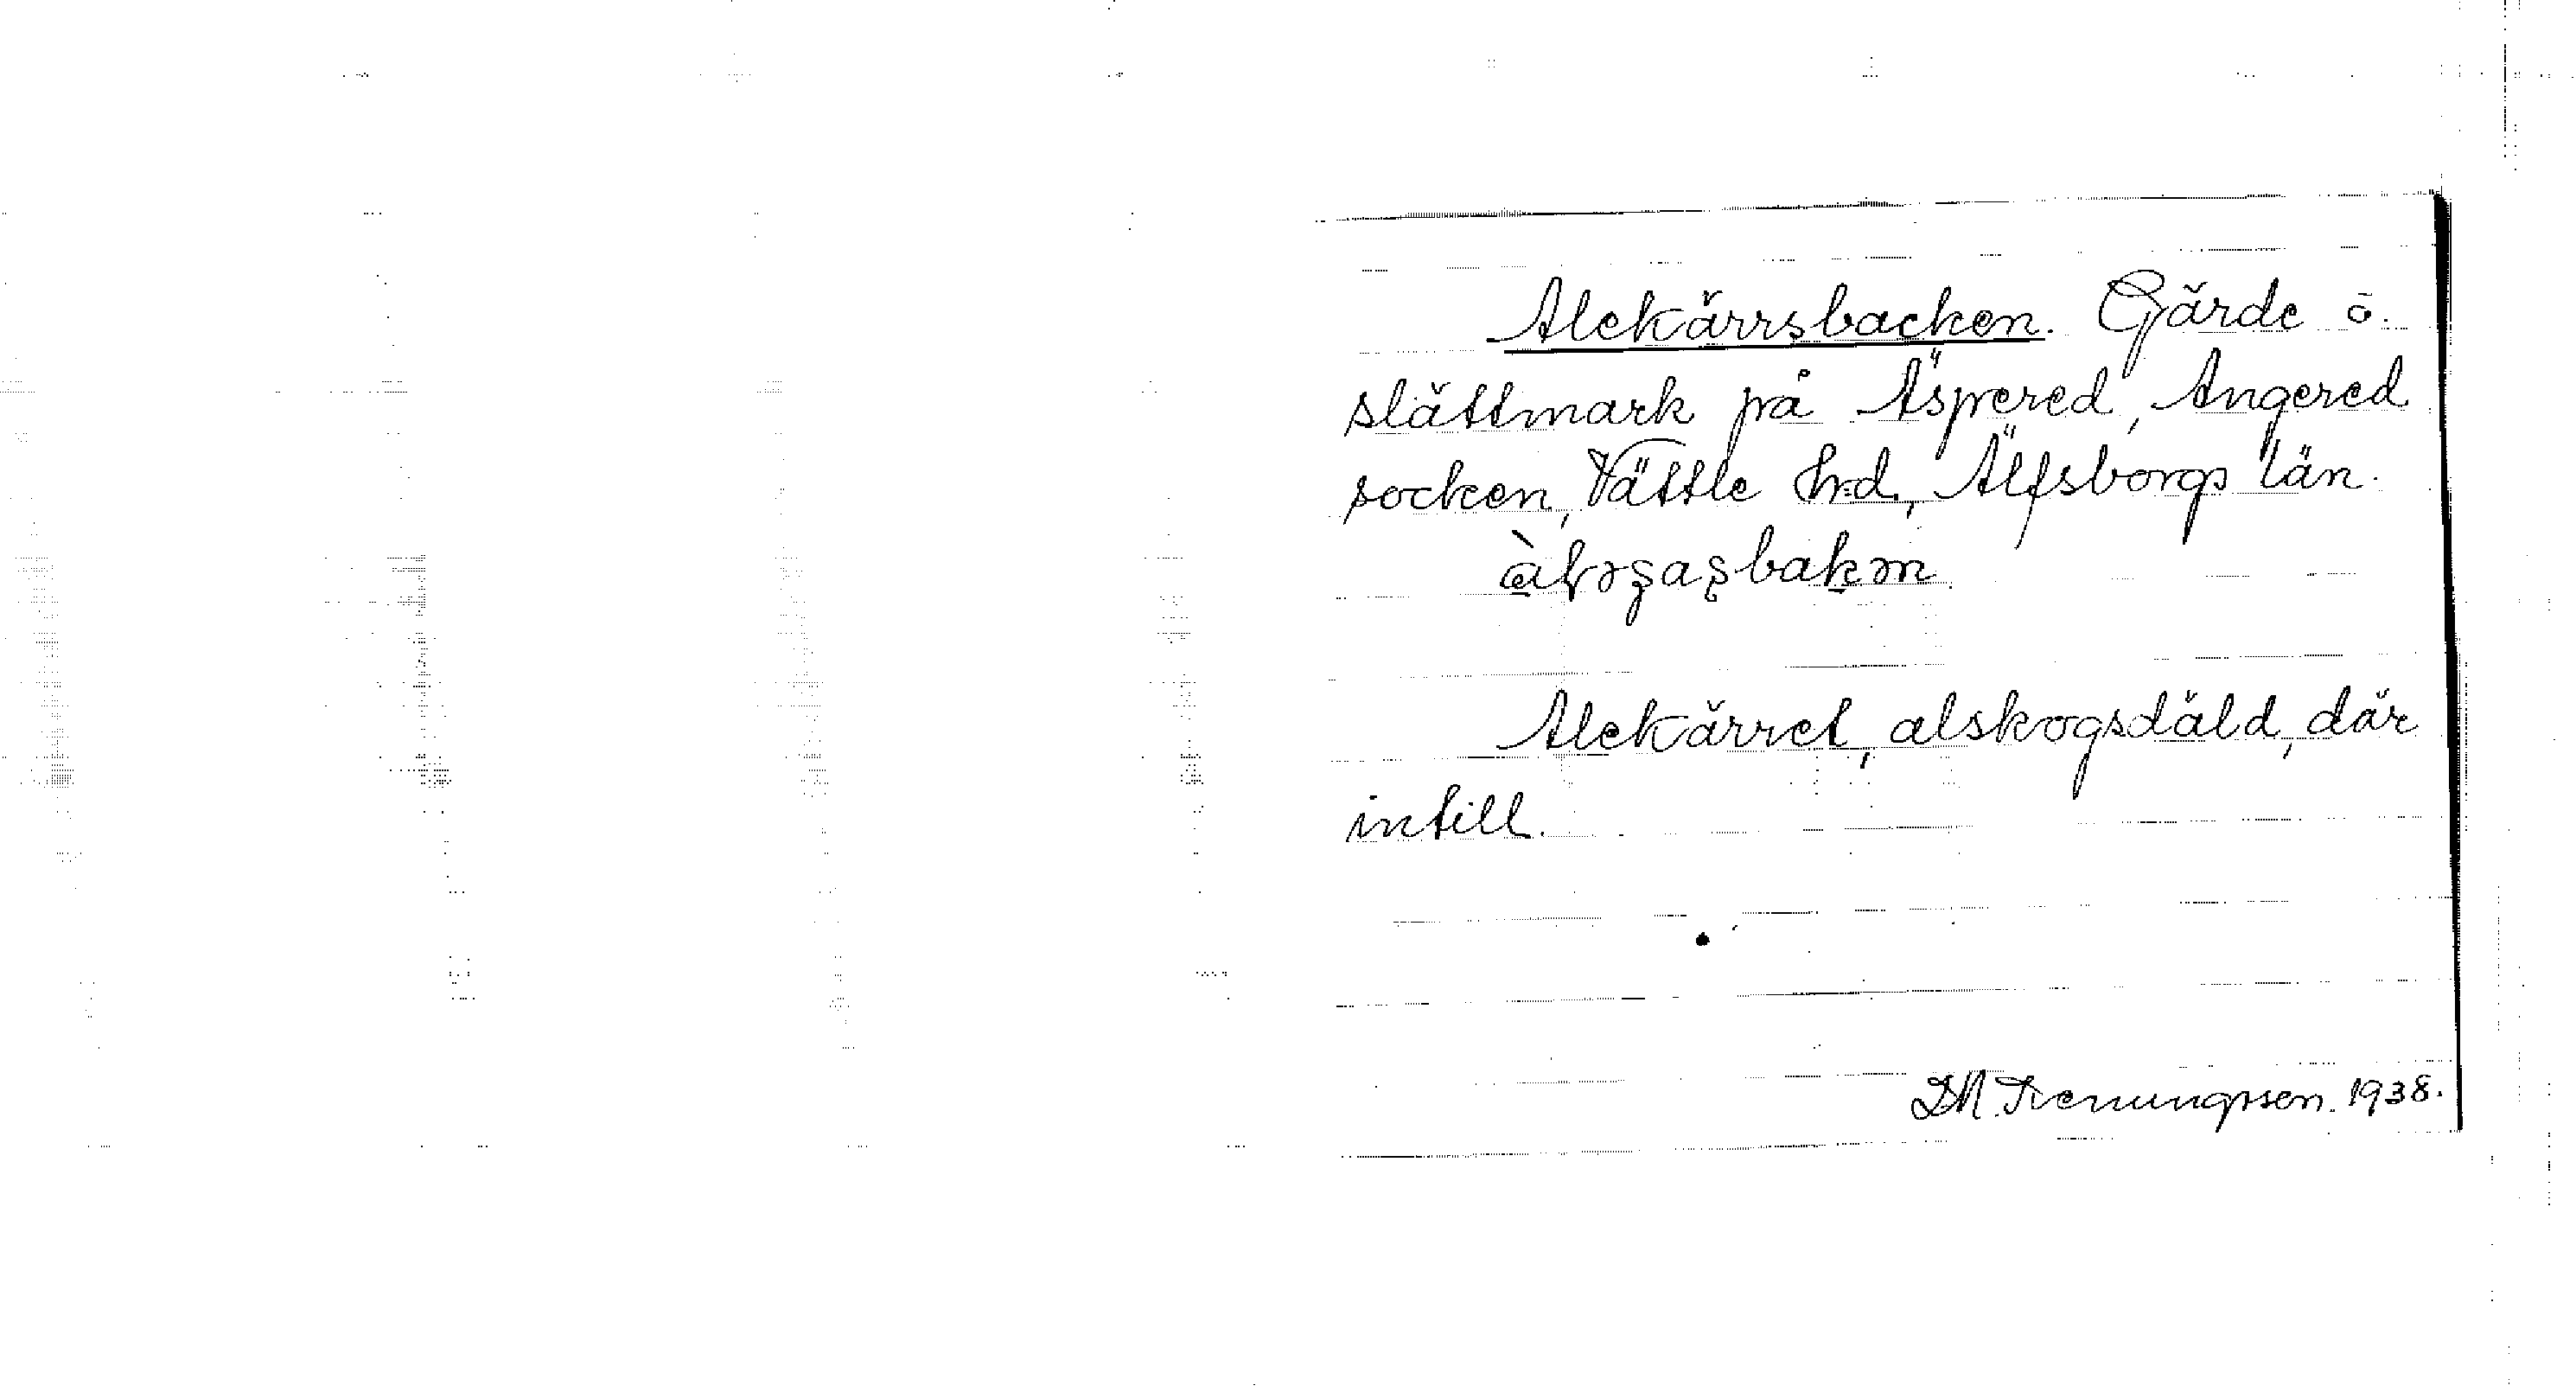 Alekärrsbacken. Gärde o.
slättmark på Äspered, Angered
socken, Vättle hd, Älfsborgs län.
Alekärret, alskogsdäld, där
intill.
1938.